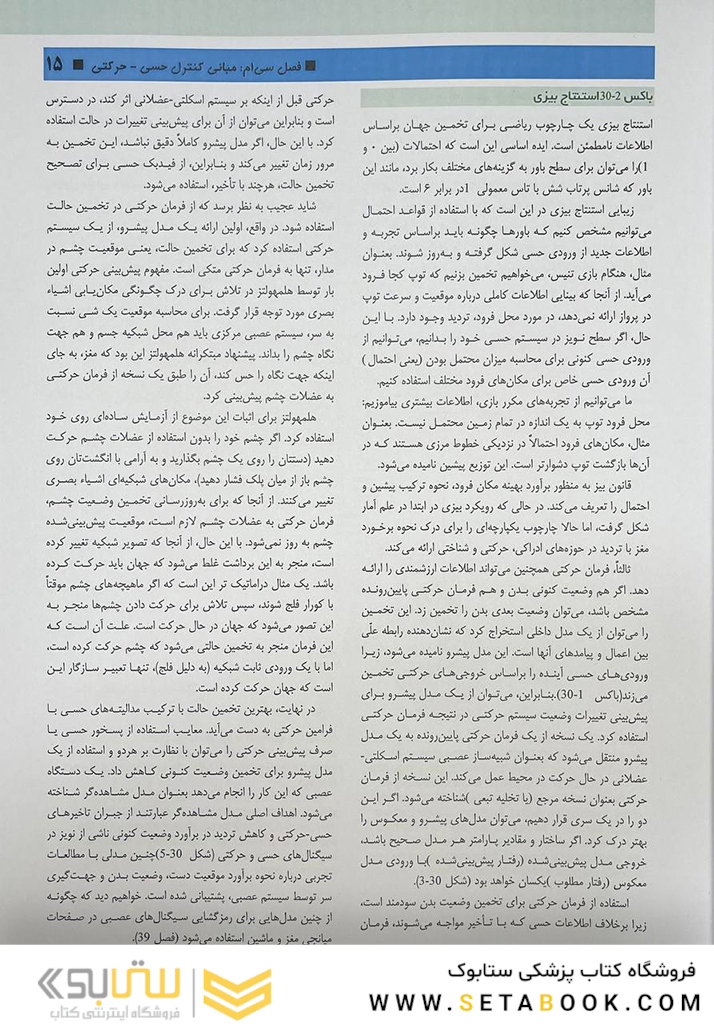 فصل سی‌ام: مبانی کنترل حسی - حرکتی ■ ۱۵
باکس 2-30استنتاج بیزی
استنتاج بیزی یک چارچوب ریاضی برای تخمین جهان براساس
اطلاعات نامطمئن است. ایده اساسی این است که احتمالات (بین ۰ و
1)را می‌توان برای سطح باور به گزینه‌های مختلف بکار برد، مانند این
باور که شانس پرتاب شش با تاس معمولی 1در برابر ۶ است.
زیبایی استنتاج بیزی در این است که با استفاده از قواعد احتمال
می‌توانیم مشخص کنیم که باورها چگونه باید براساس تجربه و
اطلاعات جدید از ورودی حسی شکل گرفته و به‌روز شوند. بعنوان
مثال، هنگام بازی تنیس، می‌خواهیم تخمین بزنیم که توپ کجا فرود
می‌آید. از آنجا که بینایی اطلاعات کاملی درباره موقعیت و سرعت توپ
در پرواز ارائه نمی‌دهد، در مورد محل فرود، تردید وجود دارد. با این
حال، اگر سطح نویز در سیستم حسی خود را بدانیم، می‌توانیم از
ورودی حسی کنونی برای محاسبه میزان محتمل بودن (یعنی احتمال )
آن ورودی حسی خاص برای مکان‌های فرود مختلف استفاده کنیم.
ما می‌توانیم از تجربه‌های مکرر بازی، اطلاعات بیشتری بیاموزیم:
محل فرود توپ به یک اندازه در تمام زمین محتمل نیست. بعنوان
مثال، مکان‌های فرود احتمالاً در نزدیکی خطوط مرزی هستند که در
آن‌ها بازگشت توپ دشوارتر است. این توزیع پیشین نامیده می‌شود.
قانون بیز به منظور برآورد بهینه مکان فرود، نحوه ترکیب پیشین و
احتمال را تعریف می‌کند. در حالی که رویکرد بیزی در ابتدا در علم آمار
شکل گرفت، اما حالا چارچوب یکپارچه‌ای را برای درک نحوه برخورد
مغز با تردید در حوزه‌های ادراکی، حرکتی و شناختی ارائه می‌کند.
ثالثاً، فرمان حرکتی همچنین می‌تواند اطلاعات ارزشمندی را ارائه
دهد. اگر هم وضعیت کنونی بدن و هم فرمان حرکتی پایین‌رونده
مشخص باشد، می‌توان وضعیت بعدی بدن را تخمین زد. این تخمین
را می‌توان از یک مدل داخلی استخراج کرد که نشان‌دهنده رابطه علّی
بین اعمال و پیامدهای آنها است. این مدل پیشرو نامیده می‌شود، زیرا
ورودی‌های حسی آینده را براساس خروجی‌های حرکتی تخمین
می‌زند(باکس 1-30).بنابراین، می‌توان از یک مدل پیشرو برای
پیش‌بینی تغییرات وضعیت سیستم حرکتی در نتیجه فرمان حرکتی
استفاده کرد. یک نسخه از یک فرمان حرکتی پایین‌رونده به یک مدل
پیشرو منتقل می‌شود که بعنوان شبیه‌ساز عصبی سیستم اسکلتی-
عضلانی در حال حرکت در محیط عمل می‌کند. این نسخه از فرمان
حرکتی بعنوان نسخه مرجع (یا تخلیه تبعی )شناخته می‌شود. اگر این
دو را در یک سری قرار دهیم، می‌توان مدل‌های پیشرو و معکوس را
بهتر درک کرد. اگر ساختار و مقادیر پارامتر هر مدل صحیح باشد،
خروجی مدل پیش‌بینی‌شده (رفتار پیش‌بینی‌شده )با ورودی مدل
معکوس (رفتار مطلوب )یکسان خواهد بود (شکل 30-3).
استفاده از فرمان حرکتی برای تخمین وضعیت بدن سودمند است،
زیرا برخلاف اطلاعات حسی که با تأخیر مواجه می‌شوند، فرمان
حرکتی قبل از اینکه بر سیستم اسکلتی-عضلانی اثر کند، در دسترس
است و بنابراین می‌توان از آن برای پیش‌بینی تغییرات در حالت استفاده
کرد. با این حال، اگر مدل پیشرو کاملاً دقیق نباشد، این تخمین به
مرور زمان تغییر می‌کند و بنابراین، از فیدبک حسی برای تصحیح
تخمین حالت، هرچند با تأخیر، استفاده می‌شود.
شاید عجیب به نظر برسد که از فرمان حرکتی در تخمین حالت
استفاده شود. در واقع، اولین ارائه یک مدل پیشرو، از یک سیستم
حرکتی استفاده کرد که برای تخمین حالت، یعنی موقعیت چشم در
مدار، تنها به فرمان حرکتی متکی است. مفهوم پیش‌بینی حرکتی اولین
بار توسط هلمهولتز در تلاش برای درک چگونگی مکان‌یابی اشیاء
بصری مورد توجه قرار گرفت. برای محاسبه موقعیت یک شی نسبت
به سر، سیستم عصبی مرکزی باید هم محل شبکیه جسم و هم جهت
نگاه چشم را بداند. پیشنهاد مبتکرانه هلمهولتز این بود که مغز، به جای
اینکه جهت نگاه را حس کند، آن را طبق یک نسخه از فرمان حرکتی
به عضلات چشم پیش‌بینی کرد.
هلمهولتز برای اثبات این موضوع از آزمایش ساده‌ای روی خود
استفاده کرد. اگر چشم خود را بدون استفاده از عضلات چشم حرکت
دهید (دستتان را روی یک چشم بگذارید و به آرامی با انگشت‌تان روی
چشم باز از میان پلک فشار دهید)، مکان‌های شبکیه‌ای اشیاء بصری
تغییر می‌کنند. از آنجا که برای به‌روزرسانی تخمین وضعیت چشم،
فرمان حرکتی به عضلات چشم لازم است، موقعیت پیش‌بینی‌شده
چشم به روز نمی‌شود. با این حال، از آنجا که تصویر شبکیه تغییر کرده
است، منجر به این برداشت غلط می‌شود که جهان باید حرکت کرده
باشد. یک مثال دراماتیک تر این است که اگر ماهیچه‌های چشم موقتاً
با کورار فلج شوند، سپس تلاش برای حرکت دادن چشم‌ها منجر به
این تصور می‌شود که جهان در حال حرکت است. علت آن است که
این فرمان منجر به تخمین حالتی می‌شود که چشم حرکت کرده است،
اما با یک ورودی ثابت شبکیه (به دلیل فلج)، تنها تعبیر سازگار این
است که جهان حرکت کرده است.
در نهایت، بهترین تخمین حالت با ترکیب مدالیته‌های حسی با
فرامین حرکتی به دست می‌آید. معایب استفاده از پسخور حسی یا
صرف پیش‌بینی حرکتی را می‌توان با نظارت بر هردو و استفاده از یک
مدل پیشرو برای تخمین وضعیت کنونی کاهش داد. یک دستگاه
عصبی که این کار را انجام می‌دهد بعنوان مدل مشاهده‌گر شناخته
می‌شود. اهداف اصلی مدل مشاهده‌گر عبارتند از جبران تاخیرهای
حسی-حرکتی و کاهش تردید در برآورد وضعیت کنونی ناشی از نویز در
سیگنال‌های حسی و حرکتی (شکل 30-5)چنین مدلی با مطالعات
تجربی درباره نحوه برآورد موقعیت دست، وضعیت بدن و جهت‌گیری
سر توسط سیستم عصبی، پشتیبانی شده است. خواهیم دید که چگونه
از چنین مدل‌هایی برای رمزگشایی سیگنال‌های عصبی در صفحات
میانجی مغز و ماشین استفاده می‌شود (فصل 39).
فروشگاه کتاب پزشکی ستابوک
WWW.SETABOOK.COM
ستابوک
فروشگاه اینترنتی کتاب